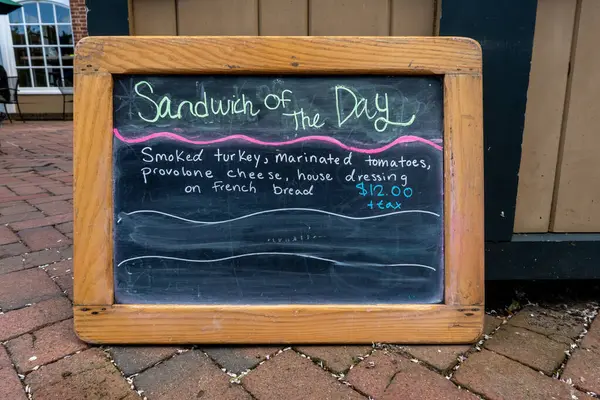 Sandwich of The Day
Smoked turkey, marinated tomatoes,
provolone cheese, house dressing
on French bread $12.00
+tax